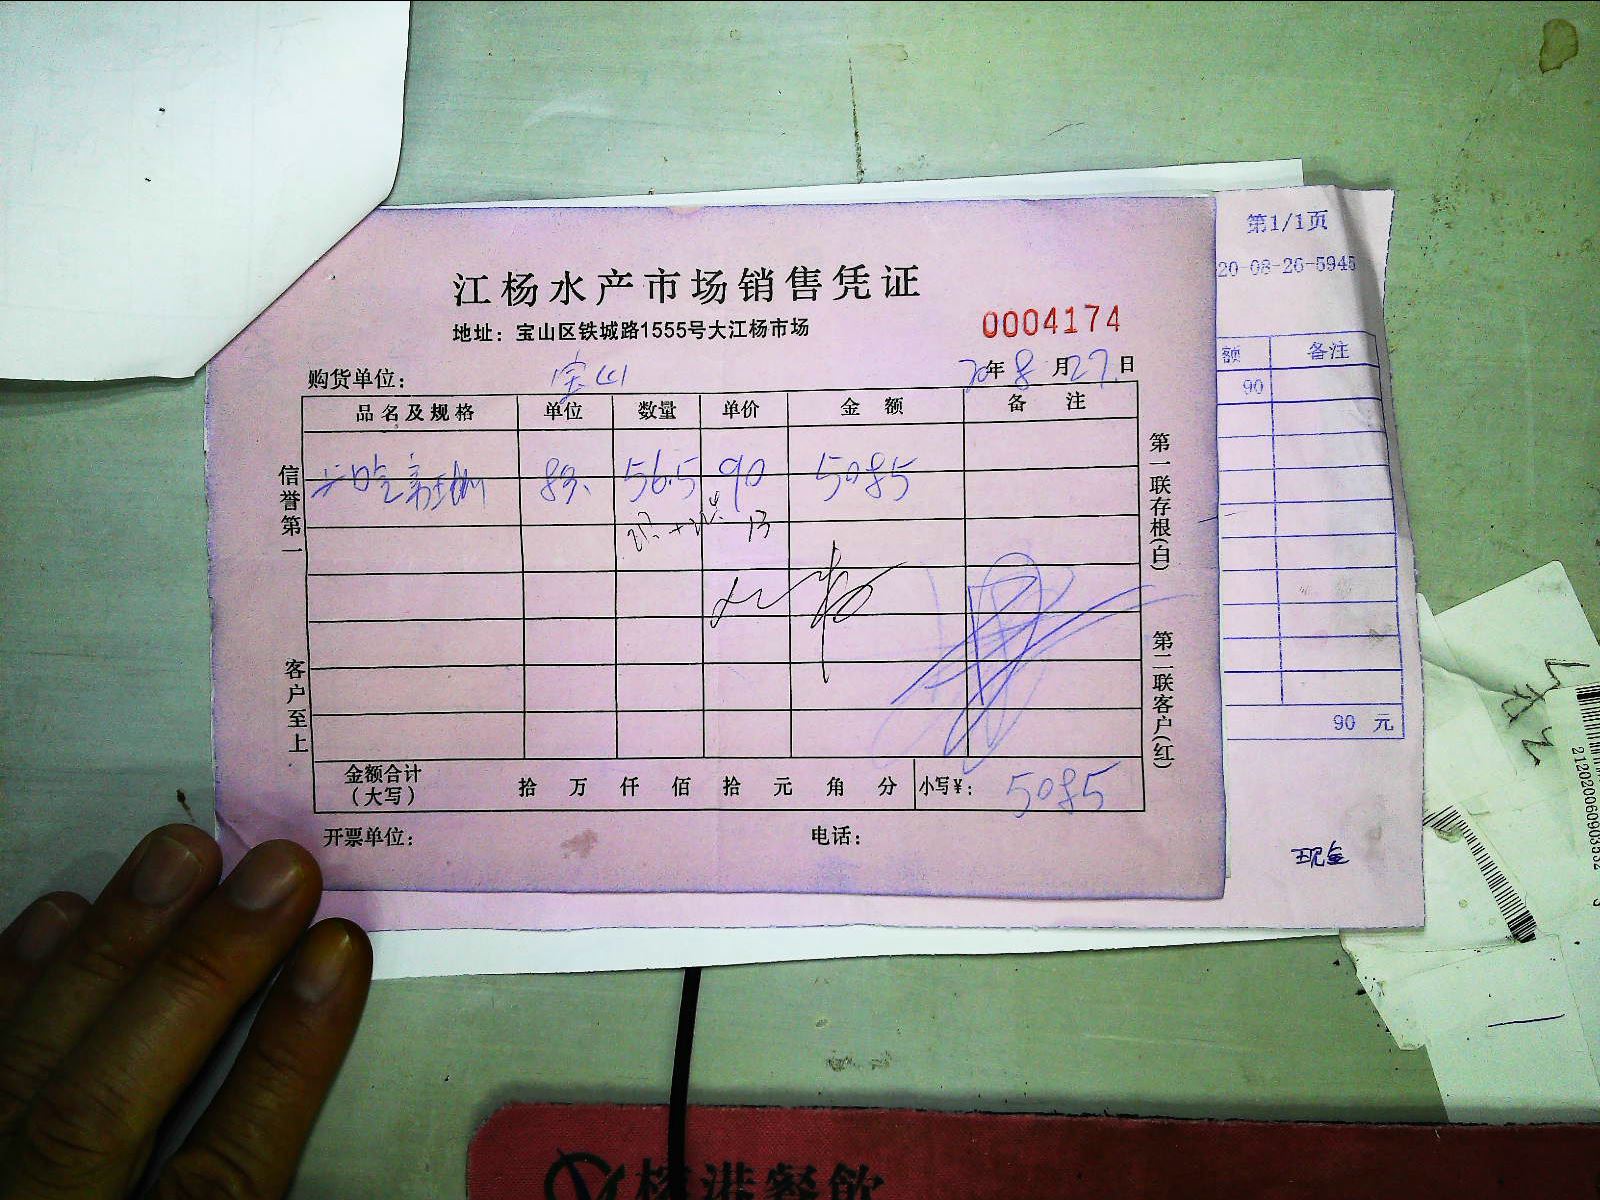 江杨水产市场销售凭证
地址：宝山区铁城路1555号大江杨市场
0004174
购货单位： 宝山 20年8月27日
品名及规格 单位 数量 单价 金额 备注
56.5 90 5085
13
金额合计（大写） 拾 万 仟 佰 拾 元 角 分 小写¥： 5085
开票单位： 电话：
信誉第一
客户至上
第一联存根(白)
第二联客户(红)
第1/1页
20-08-26-5945
额 备注
90
90 元
21202060903532
港餐飲